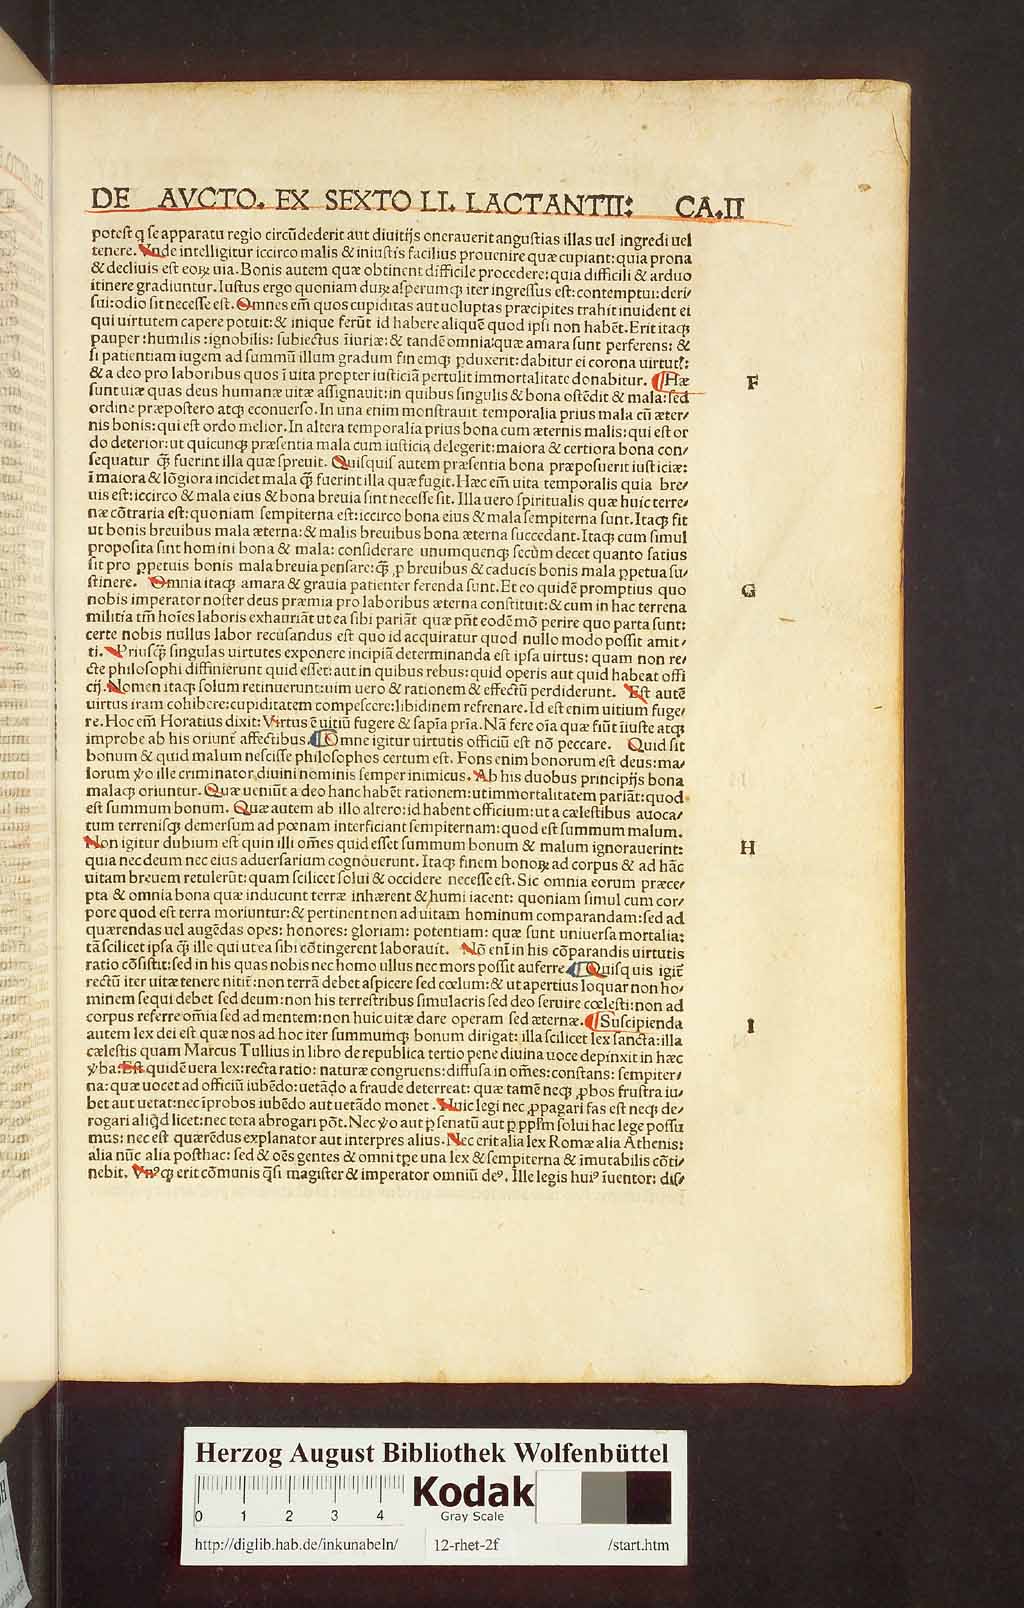 DE AVCTO. EX SEXTO LI. LACTANTII: CA.II
potest q se apparatu regio circūdederit aut diuitijs onerauerit angustias illas uel ingredi uel
tenere. Vnde intelligitur iccirco malis & iniustis facilius prouenire quæ cupiant: quia prona
& decliuis est eoꝝ uia. Bonis autem quæ obtinent difficile procedere: quia difficili & arduo
itinere gradiuntur. Iustus ergo quoniam duꝝ asperumqꝫ iter ingressus est: contemptui: deri/
sui: odio sit necesse est. Omnes em̄ quos cupiditas aut uoluptas præcipites trahit inuident ei
qui uirtutem capere potuit: & inique ferūt id habere aliquē quod ipsi non habēt. Erit itaqꝫ
pauper: humilis: ignobilis: subiectus īiuriæ: & tandē omnia quæ amara sunt perferens: &
si patientiam iugem ad summū illum gradum finemqꝫ ꝑduxerit: dabitur ei corona uirtutꝭ:
& a deo pro laboribus quos ī uita propter iusticiā pertulit immortalitate donabitur. Hæ
F
sunt uiæ quas deus humanæ uitæ assignauit: in quibus singulis & bona ostēdit & mala: sed
ordine præpostero atqꝫ econuerso. In una enim monstrauit temporalia prius mala cū æter/
nis bonis: qui est ordo melior. In altera temporalia prius bona cum æternis malis: qui est or
do deterior: ut quicunqꝫ præsentia mala cum iusticia delegerit: maiora & certiora bona con/
sequatur q̄ꝫ fuerint illa quæ spreuit. Quisquis autem præsentia bona præposuerit iusticiæ:
ī maiora & lōgiora incidet mala q̄ꝫ fuerint illa quæ fugit. Hæc em̄ uita temporalis quia bre/
uis est: iccirco & mala eius & bona breuia sint necesse sit. Illa uero spiritualis quæ huic terre/
næ cōtraria est: quoniam sempiterna est: iccirco bona eius & mala sempiterna sunt. Itaqꝫ fit
ut bonis breuibus mala æterna: & malis breuibus bona æterna succedant. Itaqꝫ cum simul
proposita sint homini bona & mala: considerare unumquenqꝫ secūm decet quanto satius
sit pro ꝑpetuis bonis mala breuia pensare: q̄ꝫ ꝓ breuibus & caducis bonis mala ꝑpetua su/
stinere. Omnia itaqꝫ amara & grauia patienter ferenda sunt. Et eo quidē promptius quo
G
nobis imperator noster deus præmia pro laboribus æterna constituit: & cum in hac terrena
militia tm̄ hoīes laboris exhauriāt ut ea sibi pariāt quæ pn̄t eodē mō perire quo parta sunt:
certe nobis nullus labor recusandus est quo id acquiratur quod nullo modo possit amit/
ti. Priusqꝫ singulas uirtutes exponere incipiā determinanda est ipsa uirtus: quam non re/
cte philosophi diffinierunt quid esset: aut in quibus rebus: quid operis aut quid habeat offi
cij. Nomen itaqꝫ solum retinuerunt: uim uero & rationem & effectū perdiderunt. Est autē
uirtus iram cohibere: cupiditatem compescere: libidinem refrenare. Id est enim uitium fuge/
re. Hoc em̄ Horatius dixit: Virtus ē uitiū fugere & sapīa prīa. Nā fere oīa quæ fiūt iiuste atqꝫ
improbe ab his oriunt affectibus. Omne igitur uirtutis officiū est nō peccare. Quid sit
bonum & quid malum nescisse philosophos certum est. Fons enim bonorum est deus: ma/
lorum ꝟo ille criminator diuini nominis semper inimicus. Ab his duobus principijs bona
malaqꝫ oriuntur. Quæ ueniūt a deo hanc habēt rationem: ut immortalitatem pariāt: quod
est summum bonum. Quæ autem ab illo altero: id habent officium: ut a cælestibus auoca/
tum terrenisqꝫ demersum ad pœnam interficiant sempiternam: quod est summum malum.
Non igitur dubium est quin illi om̄es quid esset summum bonum & malum ignorauerint:
H
quia nec deum nec eius aduersarium cognouerunt. Itaqꝫ finem bonoꝝ ad corpus & ad hāc
uitam breuem retulerūt: quam scilicet solui & occidere necesse est. Sic omnia eorum præce/
pta & omnia bona quæ inducunt terræ inhærent & humi iacent: quoniam simul cum cor/
pore quod est terra moriuntur: & pertinent non ad uitam hominum comparandam: sed ad
quærendas uel augēdas opes: honores: gloriam: potentiam: quæ sunt uniuersa mortalia:
tā scilicet ipsa q̄ꝫ ille qui ut ea sibi cōtingerent laborauit. Nō ent in his cōparandis uirtutis
ratio cōsistit: sed in his quas nobis nec homo ullus nec mors possit auferre. Quisquis igit̄
rectū iter uitæ tenere nitit̄: non terrā debet aspicere sed cœlum: & ut apertius loquar non ho/
minem sequi debet sed deum: non his terrestribus simulacris sed deo seruire cœlesti: non ad
corpus referre om̄ia sed ad mentem: non huic uitæ dare operam sed æternæ. Suscipienda
I
autem lex dei est quæ nos ad hoc iter summumqꝫ bonum dirigat: illa scilicet lex sancta: illa
cælestis quam Marcus Tullius in libro de republica tertio pene diuina uoce depinxit in hæc
ꝟba: Est quidē uera lex: recta ratio: naturæ congruens: diffusa in om̄es: constans: sempiter/
na: quæ uocet ad officiū iubēdo: uetādo a fraude deterreat: quæ tamē neqꝫ ꝓbos frustra iu/
bet aut uetat: nec īprobos iubēdo aut uetādo monet. Huic legi nec ꝓpagari fas est neqꝫ de/
rogari aliqd licet: nec tota abrogari pōt. Nec ꝟo aut ꝑ senatū aut ꝑ ppl̄m solui hac lege possu
mus: nec est quærēdus explanator aut interpres alius. Nec erit alia lex Romæ alia Athenis:
alia nūc alia posthac: sed & oēs gentes & omni tꝑe una lex & sempiterna & īmutabilis cōti/
nebit. Vnꝰqꝫ erit cōmunis q̄si magister & imperator omniū deꝰ. Ille legis huiꝰ īuentor: dis/
Herzog August Bibliothek Wolfenbüttel
0 1 2 3 4
Kodak
Gray Scale
http://diglib.hab.de/inkunabeln/ 12-rhet-2f /start.htm